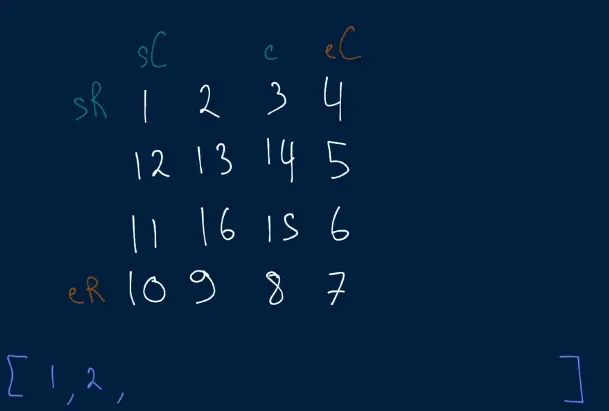 sC c eC
sR 1 2 3 4
12 13 14 5
11 16 15 6
eR 10 9 8 7
[ 1, 2, ]